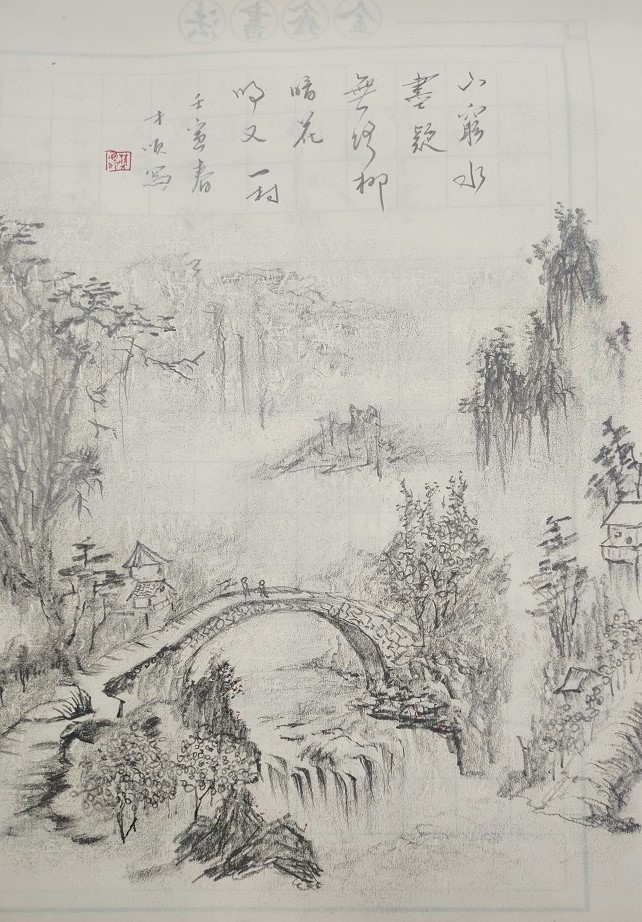 金鑫書法
山窮水
盡疑
無路柳
暗花
明又一村
壬寅春
才順寫